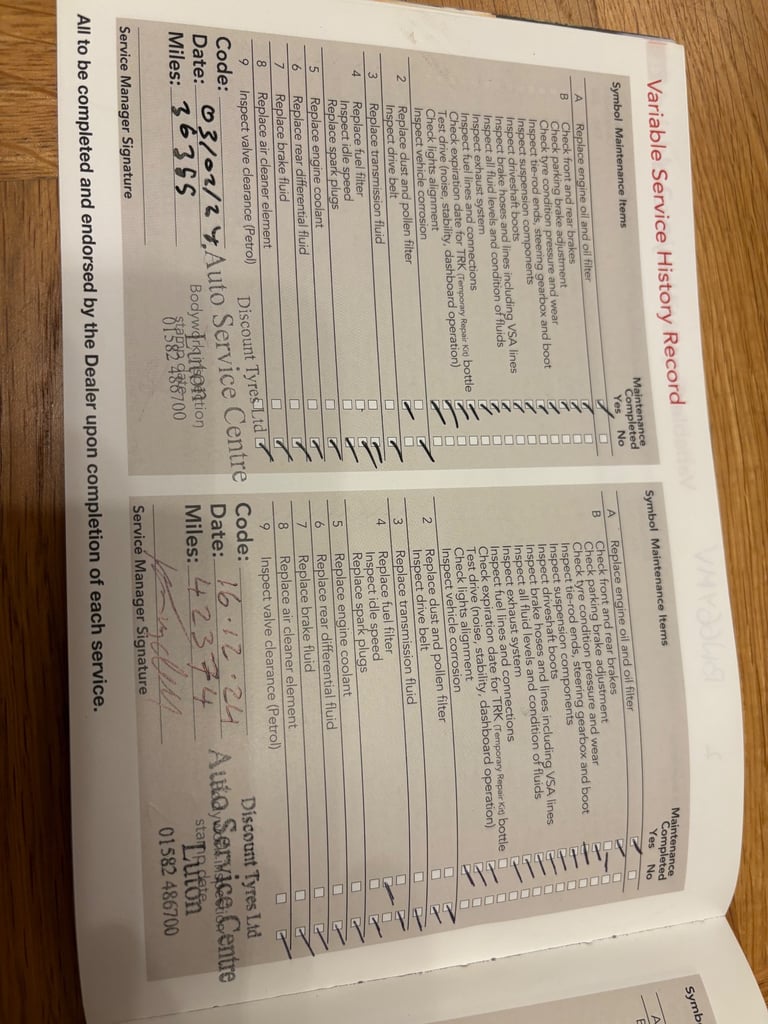 Variable Service History Record
Symbol Maintenance Items
Maintenance
Completed
Yes No
A Replace engine oil and oil filter
B Check front and rear brakes
Check parking brake adjustment
Check tyre condition pressure and wear
Inspect tie-rod ends, steering gearbox and boot
Inspect suspension components
Inspect driveshaft boots
Inspect brake hoses and lines including VSA lines
Inspect all fluid levels and condition of fluids
Inspect exhaust system
Inspect fuel lines and connections
Check expiration date for TRK (Temporary Repair Kit) bottle
Test drive (noise, stability, dashboard operation)
Check lights alignment
Inspect vehicle corrosion
2 Replace dust and pollen filter
Inspect drive belt
3 Replace transmission fluid
4 Replace fuel filter
Inspect idle speed
Replace spark plugs
5 Replace engine coolant
6 Replace rear differential fluid
7 Replace brake fluid
8 Replace air cleaner element
9 Inspect valve clearance (Petrol)
Code:
Date: 03/02/24
Miles: 36355
Discount Tyres Ltd
Auto Service Centre
Luton
01582 486700
Bodywork inspection
stamp date
Service Manager Signature
Symbol Maintenance Items
Maintenance
Completed
Yes No
A Replace engine oil and oil filter
B Check front and rear brakes
Check parking brake adjustment
Check tyre condition pressure and wear
Inspect tie-rod ends, steering gearbox and boot
Inspect suspension components
Inspect driveshaft boots
Inspect brake hoses and lines including VSA lines
Inspect all fluid levels and condition of fluids
Inspect exhaust system
Inspect fuel lines and connections
Check expiration date for TRK (Temporary Repair Kit) bottle
Test drive (noise, stability, dashboard operation)
Check lights alignment
Inspect vehicle corrosion
2 Replace dust and pollen filter
Inspect drive belt
3 Replace transmission fluid
4 Replace fuel filter
Inspect idle speed
Replace spark plugs
5 Replace engine coolant
6 Replace rear differential fluid
7 Replace brake fluid
8 Replace air cleaner element
9 Inspect valve clearance (Petrol)
Code:
Date: 16.12.24
Miles: 42374
Discount Tyres Ltd
Auto Service Centre
Luton
01582 486700
Bodywork inspection
stamp date
Service Manager Signature
All to be completed and endorsed by the Dealer upon completion of each service.
Symb
A